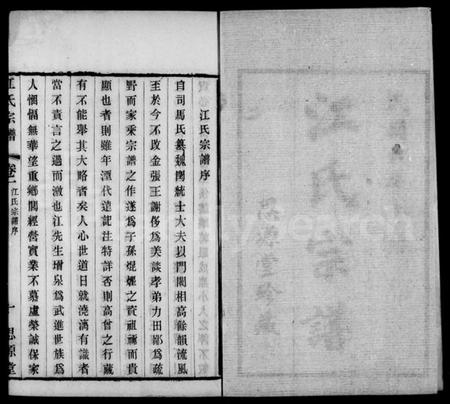 江氏宗譜
思源堂珍藏
江氏宗譜序
自司馬氏纂魏閥統士大夫以門閥相高餘韻流風
至於今不改金張王謝侈為美談孝弟力田鄙為疏
野而家乘宗譜之作遂為子孫焜燿之資祖禰而貴
顯也者則雖年湮代遠記注特詳否則高曾之行藏
有不能舉其大略者矣人心世道日就澆漓有識者
當不責言之過而激也江先生增泉為武進世族為
人悃愊無華望重鄉閭經營實業不慕虛榮誠保家
江氏宗譜
卷一
江氏宗譜序
一
思源堂